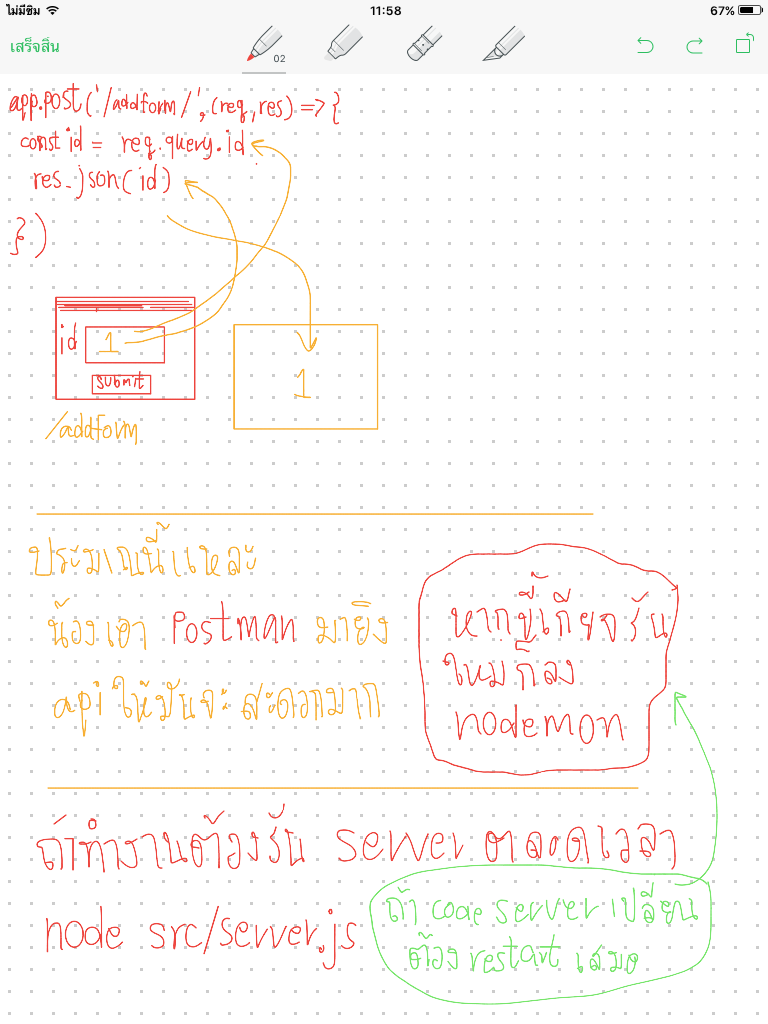 ไม่มีซิม
11:58
67%
เสร็จสิ้น
02
app.post('/addform/',(req,res) => {
const id = req.query.id
res.json(id)
})
id 1
submit
/addform
1
ประมาณนี้แหละ
น้องเอา Postman มายิง
api ให้มันจะสะดวกมาก
หากขี้เกียจรัน
ใหม่ก็ลง
nodemon
ถ้าทำงานต้องรัน server ตลอดเวลา
node src/server.js
ถ้า code server เปลี่ยน
ต้อง restart เสมอ